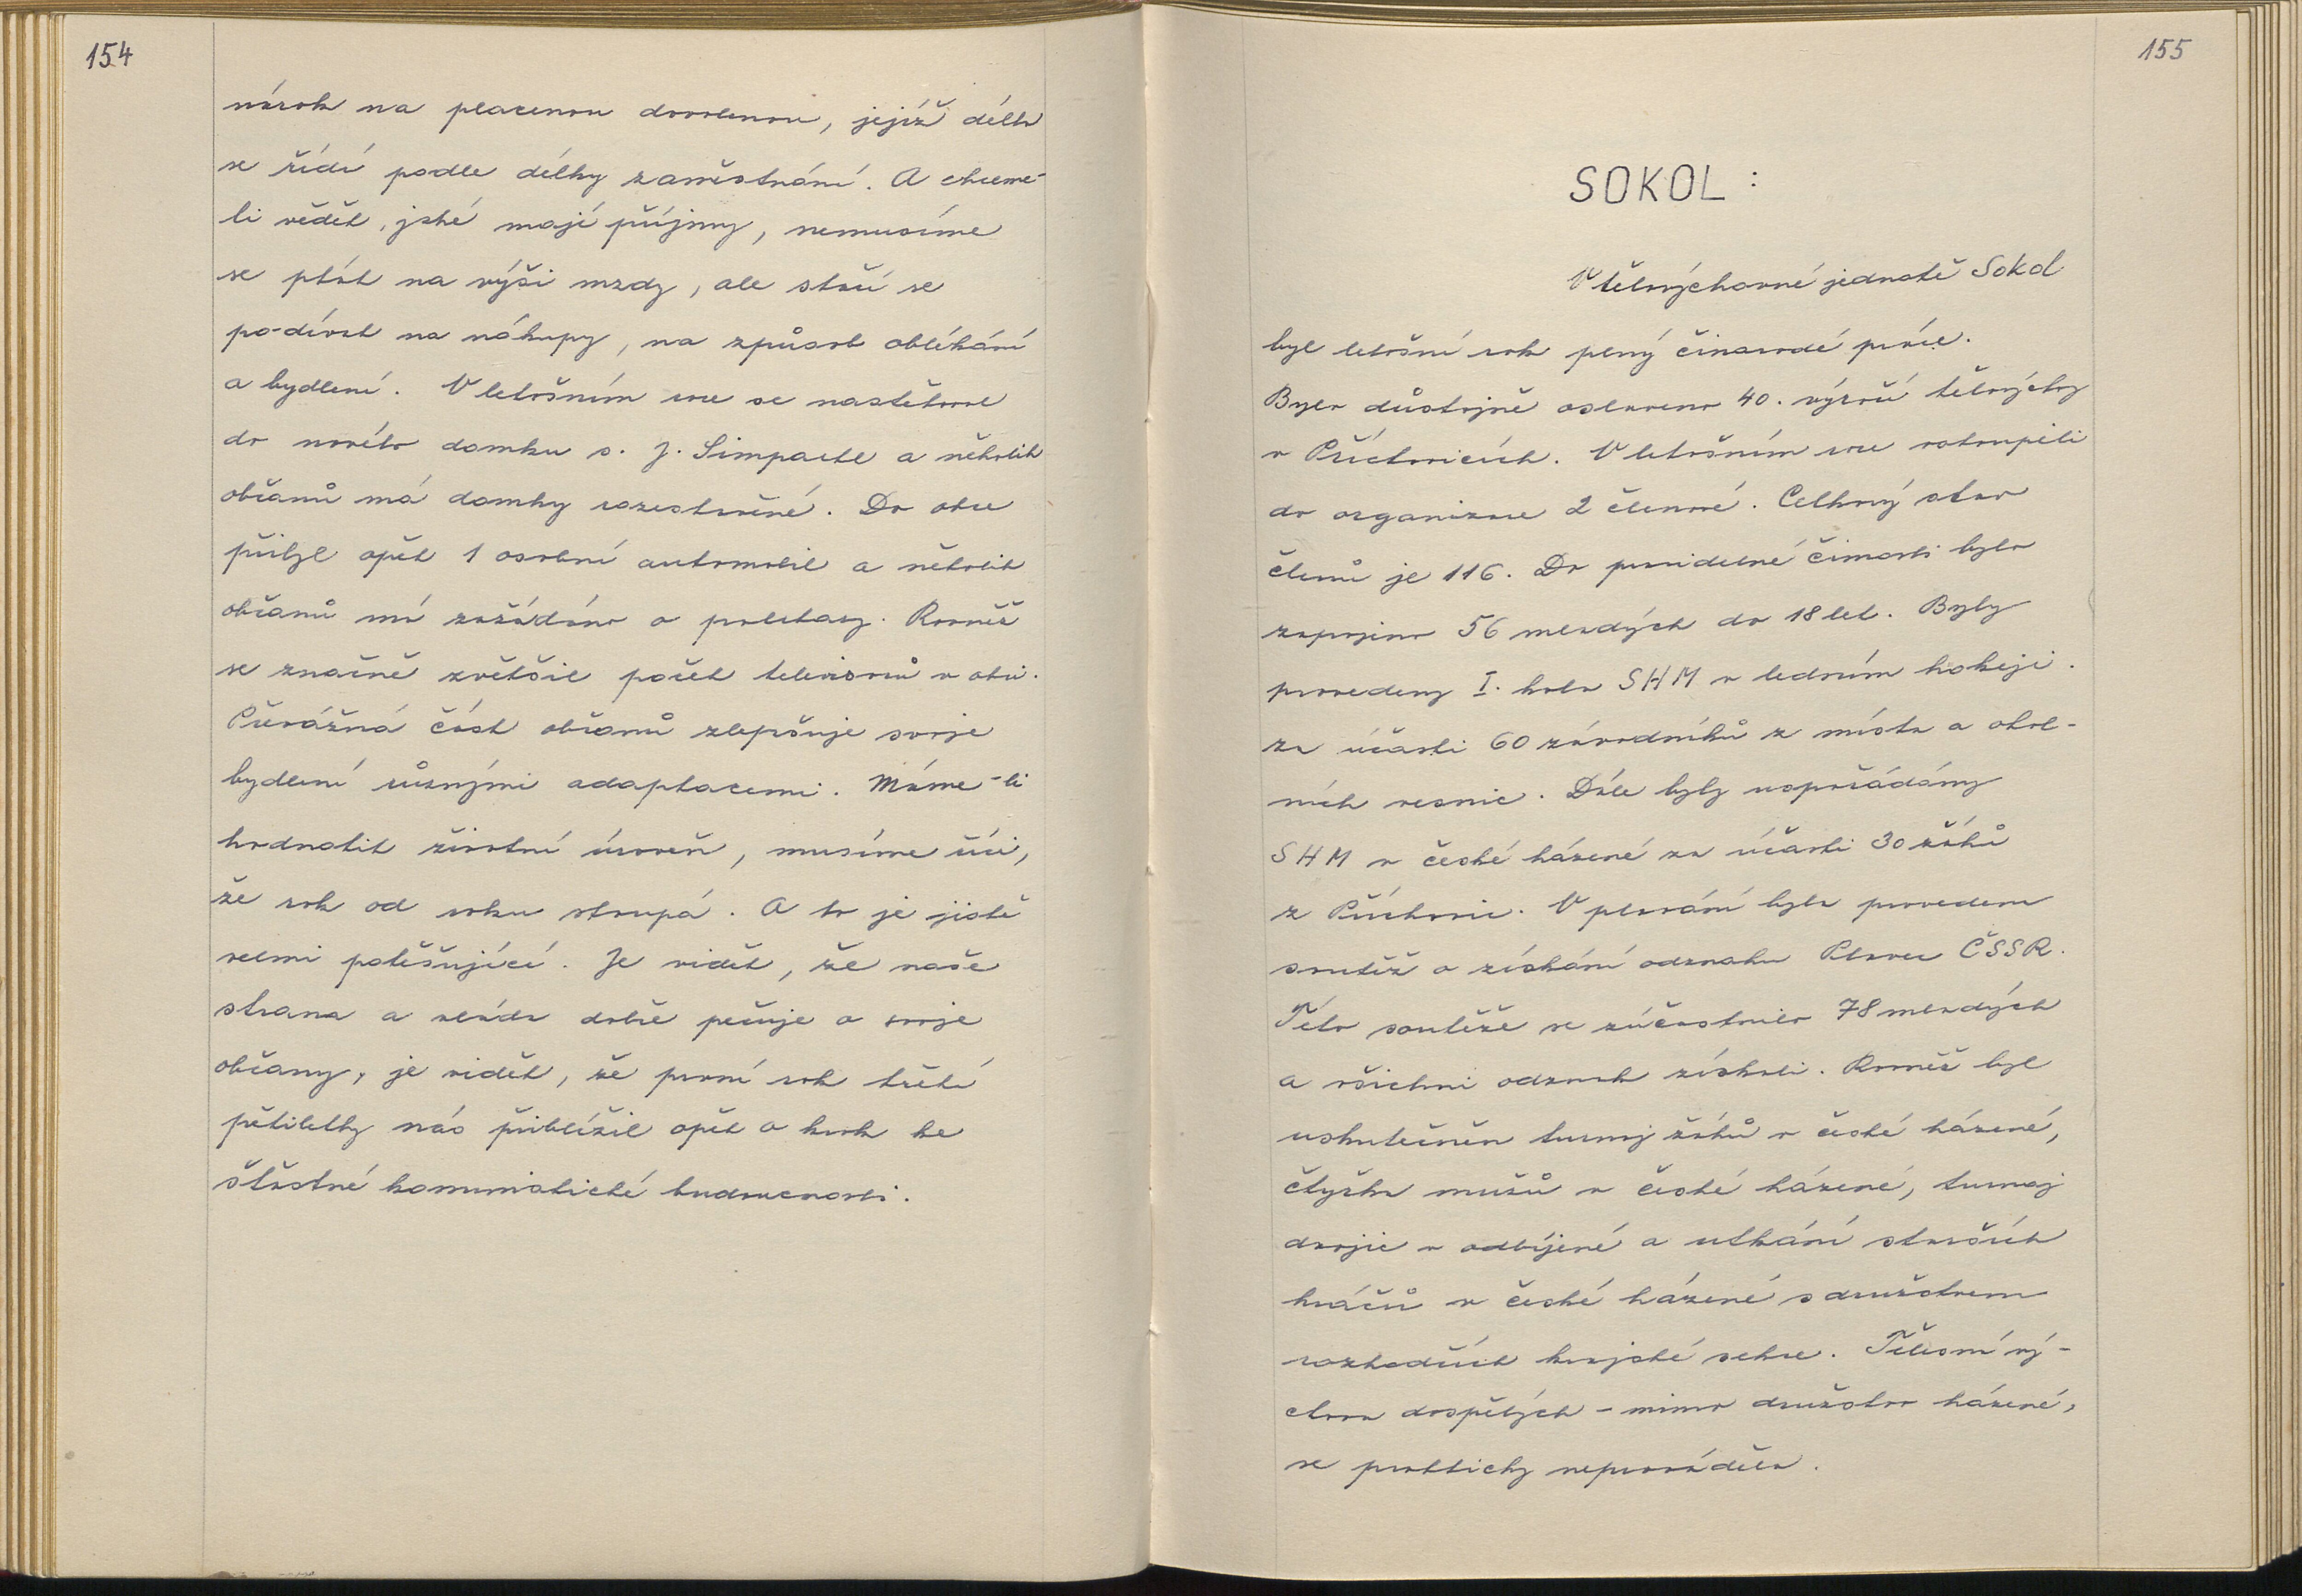 154
nárok na placenou dovolenou, jejíž délka
se řídí podle délky zaměstnání. A chceme-
li vědět, jaké mají příjmy, nemusíme
se ptát na výši mzdy, ale stačí se
po-dívat na nákupy, na způsob oblékání
a bydlení. V letošním roce se nastěhoval
do nového domku s. J. Simpartl a několik
občanů má domky rozestavěné. Do obce
přibyl opět 1 osobní automobil a několik
občanů má zažádáno o poukazy. Rovněž
se značně zvětšil počet televisorů v obci.
Převážná část občanů zlepšuje svoje
bydlení různými adaptacemi. Máme-li
hodnotit životní úroveň, musíme říci,
že rok od roku stoupá. A to je jistě
velmi potěšující. Je vidět, že naše
strana a vláda dobře pečuje o svoje
občany, je vidět, že první rok třetí
pětiletky nás přiblížil opět o krok ke
šťastné komunistické budoucnosti.
155
SOKOL:
V tělovýchovné jednotě Sokol
byl letošní rok plný činorodé práce.
Bylo důstojně oslaveno 40. výročí tělovýchovy
v Příchovicích. V letošním roce vstoupili
do organizace 2 členové. Celkový stav
členů je 116. Do pravidelné činnosti bylo
zapojeno 56 mladých do 18 let. Byly
provedeny I. kola SHM v ledním hokeji.
za účasti 60 závodníků z místa a okol-
ních vesnic. Dále byly uspořádány
SHM v české házené za účasti 30 žáků
z Příchovic. V plavání byla provedena
soutěž o získání odznaku Plavec ČSSR.
Této soutěže se zúčastnilo 78 mladých
a všichni odznak získali. Rovněž byl
uskutečněn turnaj žáků v české házené,
čtyřka mužů v české házené, turnaj
dvojic v odbíjené a utkání starších
hráčů v české házené s družstvem
rozhodčích krajské sekce. Tělesná vý-
chova dospělých - mimo družstvo házené,
se prakticky neprováděla.